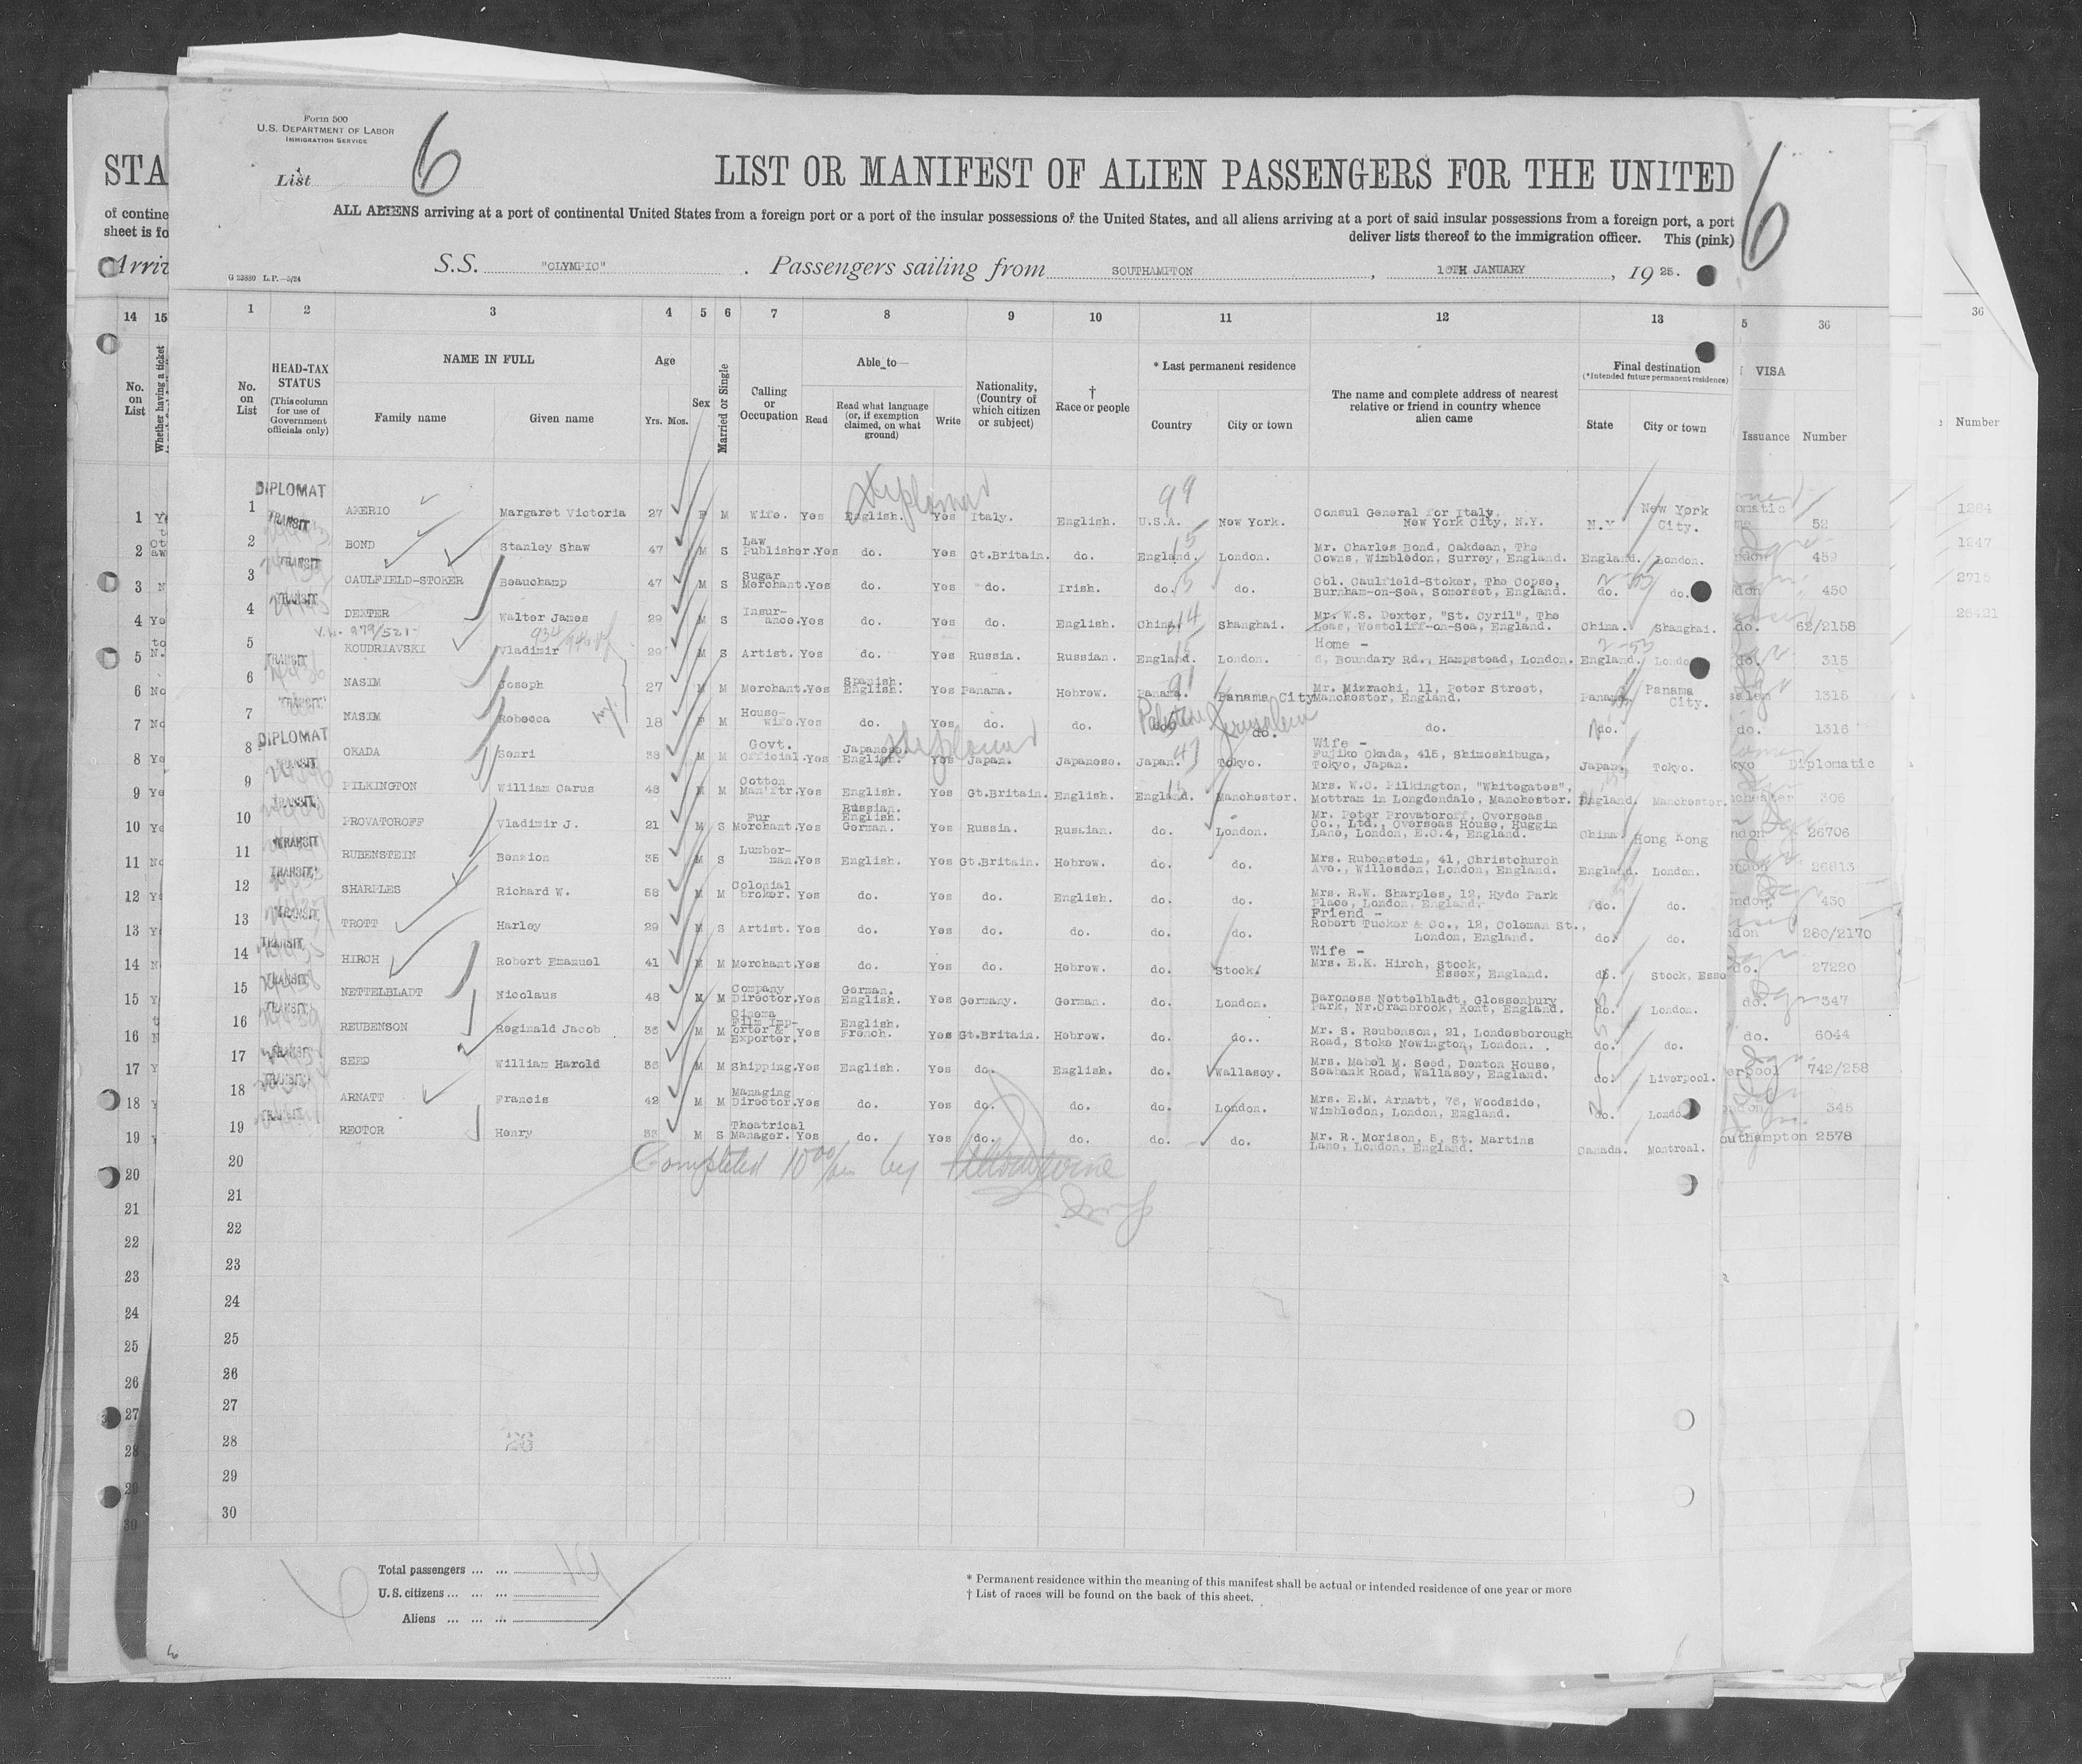 Form 500
U.S. DEPARTMENT OF LABOR
IMMIGRATION SERVICE
List 6
6
STA
LIST OR MANIFEST OF ALIEN PASSENGERS FOR THE UNITED
ALL ALIENS arriving at a port of continental United States from a foreign port or a port of the insular possessions of the United States, and all aliens arriving at a port of said insular possessions from a foreign port, a port
deliver lists thereof to the immigration officer. This (pink)
of contine
sheet is fo
Arriv
S.S. "OLYMPIC" . Passengers sailing from SOUTHAMPTON , 10TH JANUARY , 19 25.
G 23880 L.P.—5/24
14 15 1 2 3 4 5 6 7 8 9 10 11 12 13 5 36 36
No. on List
Whether having a ticket
No. on List
HEAD-TAX STATUS
(This column for use of Government officials only)
NAME IN FULL
Family name Given name
Age
Yrs. Mos.
Sex
Married or Single
Calling or Occupation
Able to—
Read
Read what language (or, if exemption claimed, on what ground)
Write
Nationality, (Country of which citizen or subject)
† Race or people
* Last permanent residence
Country City or town
The name and complete address of nearest relative or friend in country whence alien came
Final destination
(*Intended future permanent residence)
State City or town
VISA
Issuance Number
Number
DIPLOMAT
Diplomat
99
1 TRANSIT AMERIO Margaret Victoria 27 F M Wife. Yes English. Yes Italy. English. U.S.A. New York. Consul General for Italy, New York City, N.Y. N.Y New York City. 52
2 TRANSIT BOND Stanley Shaw 47 M S Law Publisher. Yes do. Yes Gt.Britain. do. England. London. Mr. Charles Bond, Oakdean, The Downs, Wimbledon, Surrey, England. England. London. 459
3 TRANSIT CAULFIELD-STOKER Beauchamp 47 M S Sugar Merchant. Yes do. Yes do. Irish. do. do. Col. Caulfield-Stoker, The Copse, Burnham-on-Sea, Somerset, England. do. do. 450
4 DEXTER Walter James 29 M S Insurance. Yes do. Yes do. English. China. Shanghai. Mr. W.S. Dexter, "St. Cyril", The Leas, Westcliff-on-Sea, England. China. Shanghai. do. 62/2158
5 TRANSIT KOUDRIAVSKI Vladimir 29 M S Artist. Yes do. Yes Russia. Russian. England. London. Home - 6, Boundary Rd., Hampstead, London. England. London do. 315
6 TRANSIT NASIM Joseph 27 M M Merchant. Yes Spanish. English. Yes Panama. Hebrew. Panama. Panama City Mr. Mizrachi, 11, Peter Street, Manchester, England. Panama. Panama City. 1315
7 NASIM Rebecca 18 F M Housewife. Yes do. Yes do. do. do. Palestine Jerusalem do. do. do. do. 1316
DIPLOMAT
Diplomat
8 TRANSIT OKADA Senri 38 M M Govt. Official. Yes Japanese. English. Yes Japan. Japanese. Japan. Tokyo. Wife - Fujiko Okada, 415, Shimoshibuga, Tokyo, Japan. Japan. Tokyo. Diplomatic
9 TRANSIT PILKINGTON William Carus 48 M M Cotton Man'ftr. Yes English. Yes Gt.Britain. English. England. Manchester. Mrs. W.C. Pilkington, "Whitegates", Mottram in Longdendale, Manchester. England. Manchester. 306
10 TRANSIT PROVATOROFF Vladimir J. 21 M S Fur Merchant. Yes Russian. English. German. Yes Russia. Russian. do. London. Mr. Peter Provatoroff, Overseas Co., Ltd., Overseas House, Huggin Lane, London, E.C.4, England. China Hong Kong 26706
11 TRANSIT RUBENSTEIN Benzion 35 M S Lumberman. Yes English. Yes Gt.Britain. Hebrew. do. do. Mrs. Rubenstein, 41, Christchurch Ave., Willesden, London, England. England. London. 26813
12 TRANSIT SHARPLES Richard W. 58 M M Colonial broker. Yes do. Yes do. English. do. do. Mrs. R.W. Sharples, 12, Hyde Park Place, London, England. do. do. 430
13 TRANSIT TROTT Harley 29 M S Artist. Yes do. Yes do. do. do. do. Friend - Robert Tucker & Co., 12, Coleman St., London, England. do. do. 280/2170
14 TRANSIT HIRCH Robert Emanuel 41 M M Merchant. Yes do. Yes do. Hebrew. do. Stock. Wife - Mrs. E.K. Hirch, Stock, Essex, England. do. Stock, Esso do. 27220
15 TRANSIT NETTELBLADT Nicolaus 48 M M Company Director. Yes German. English. Yes Germany. German. do. London. Baroness Nettelbladt, Glossenbury Park, Nr.Cranbrook, Kent, England. do. London. do. 347
16 TRANSIT REUBENSON Reginald Jacob 36 M M Cinema Film Importer & Exporter. Yes English. French. Yes Gt.Britain. Hebrew. do. do.. Mr. S. Reubenson, 21, Londesborough Road, Stoke Newington, London. do. do. do. 6044
17 TRANSIT SEED William Harold 36 M M Shipping. Yes English. Yes do. English. do. Wallasey. Mrs. Mabel M. Seed, Denton House, Seabank Road, Wallasey, England. do. Liverpool. 742/258
18 TRANSIT ARNATT Francis 42 M M Managing Director. Yes do. Yes do. do. do. London. Mrs. E.M. Arnatt, 76, Woodside, Wimbledon, London, England. do. Londo 345
19 TRANSIT RECTOR Henry 33 M S Theatrical Manager. Yes do. Yes do. do. do. do. Mr. R. Morison, 5, St. Martins Lane, London, England. Canada. Montreal. outhampton 2578
Completed 10 00/am by
20
21
22
23
24
25
26
27
28
29
30
26
Total passengers ... ... 19
U.S. citizens ... ... ...
Aliens ... ... ...
* Permanent residence within the meaning of this manifest shall be actual or intended residence of one year or more
† List of races will be found on the back of this sheet.